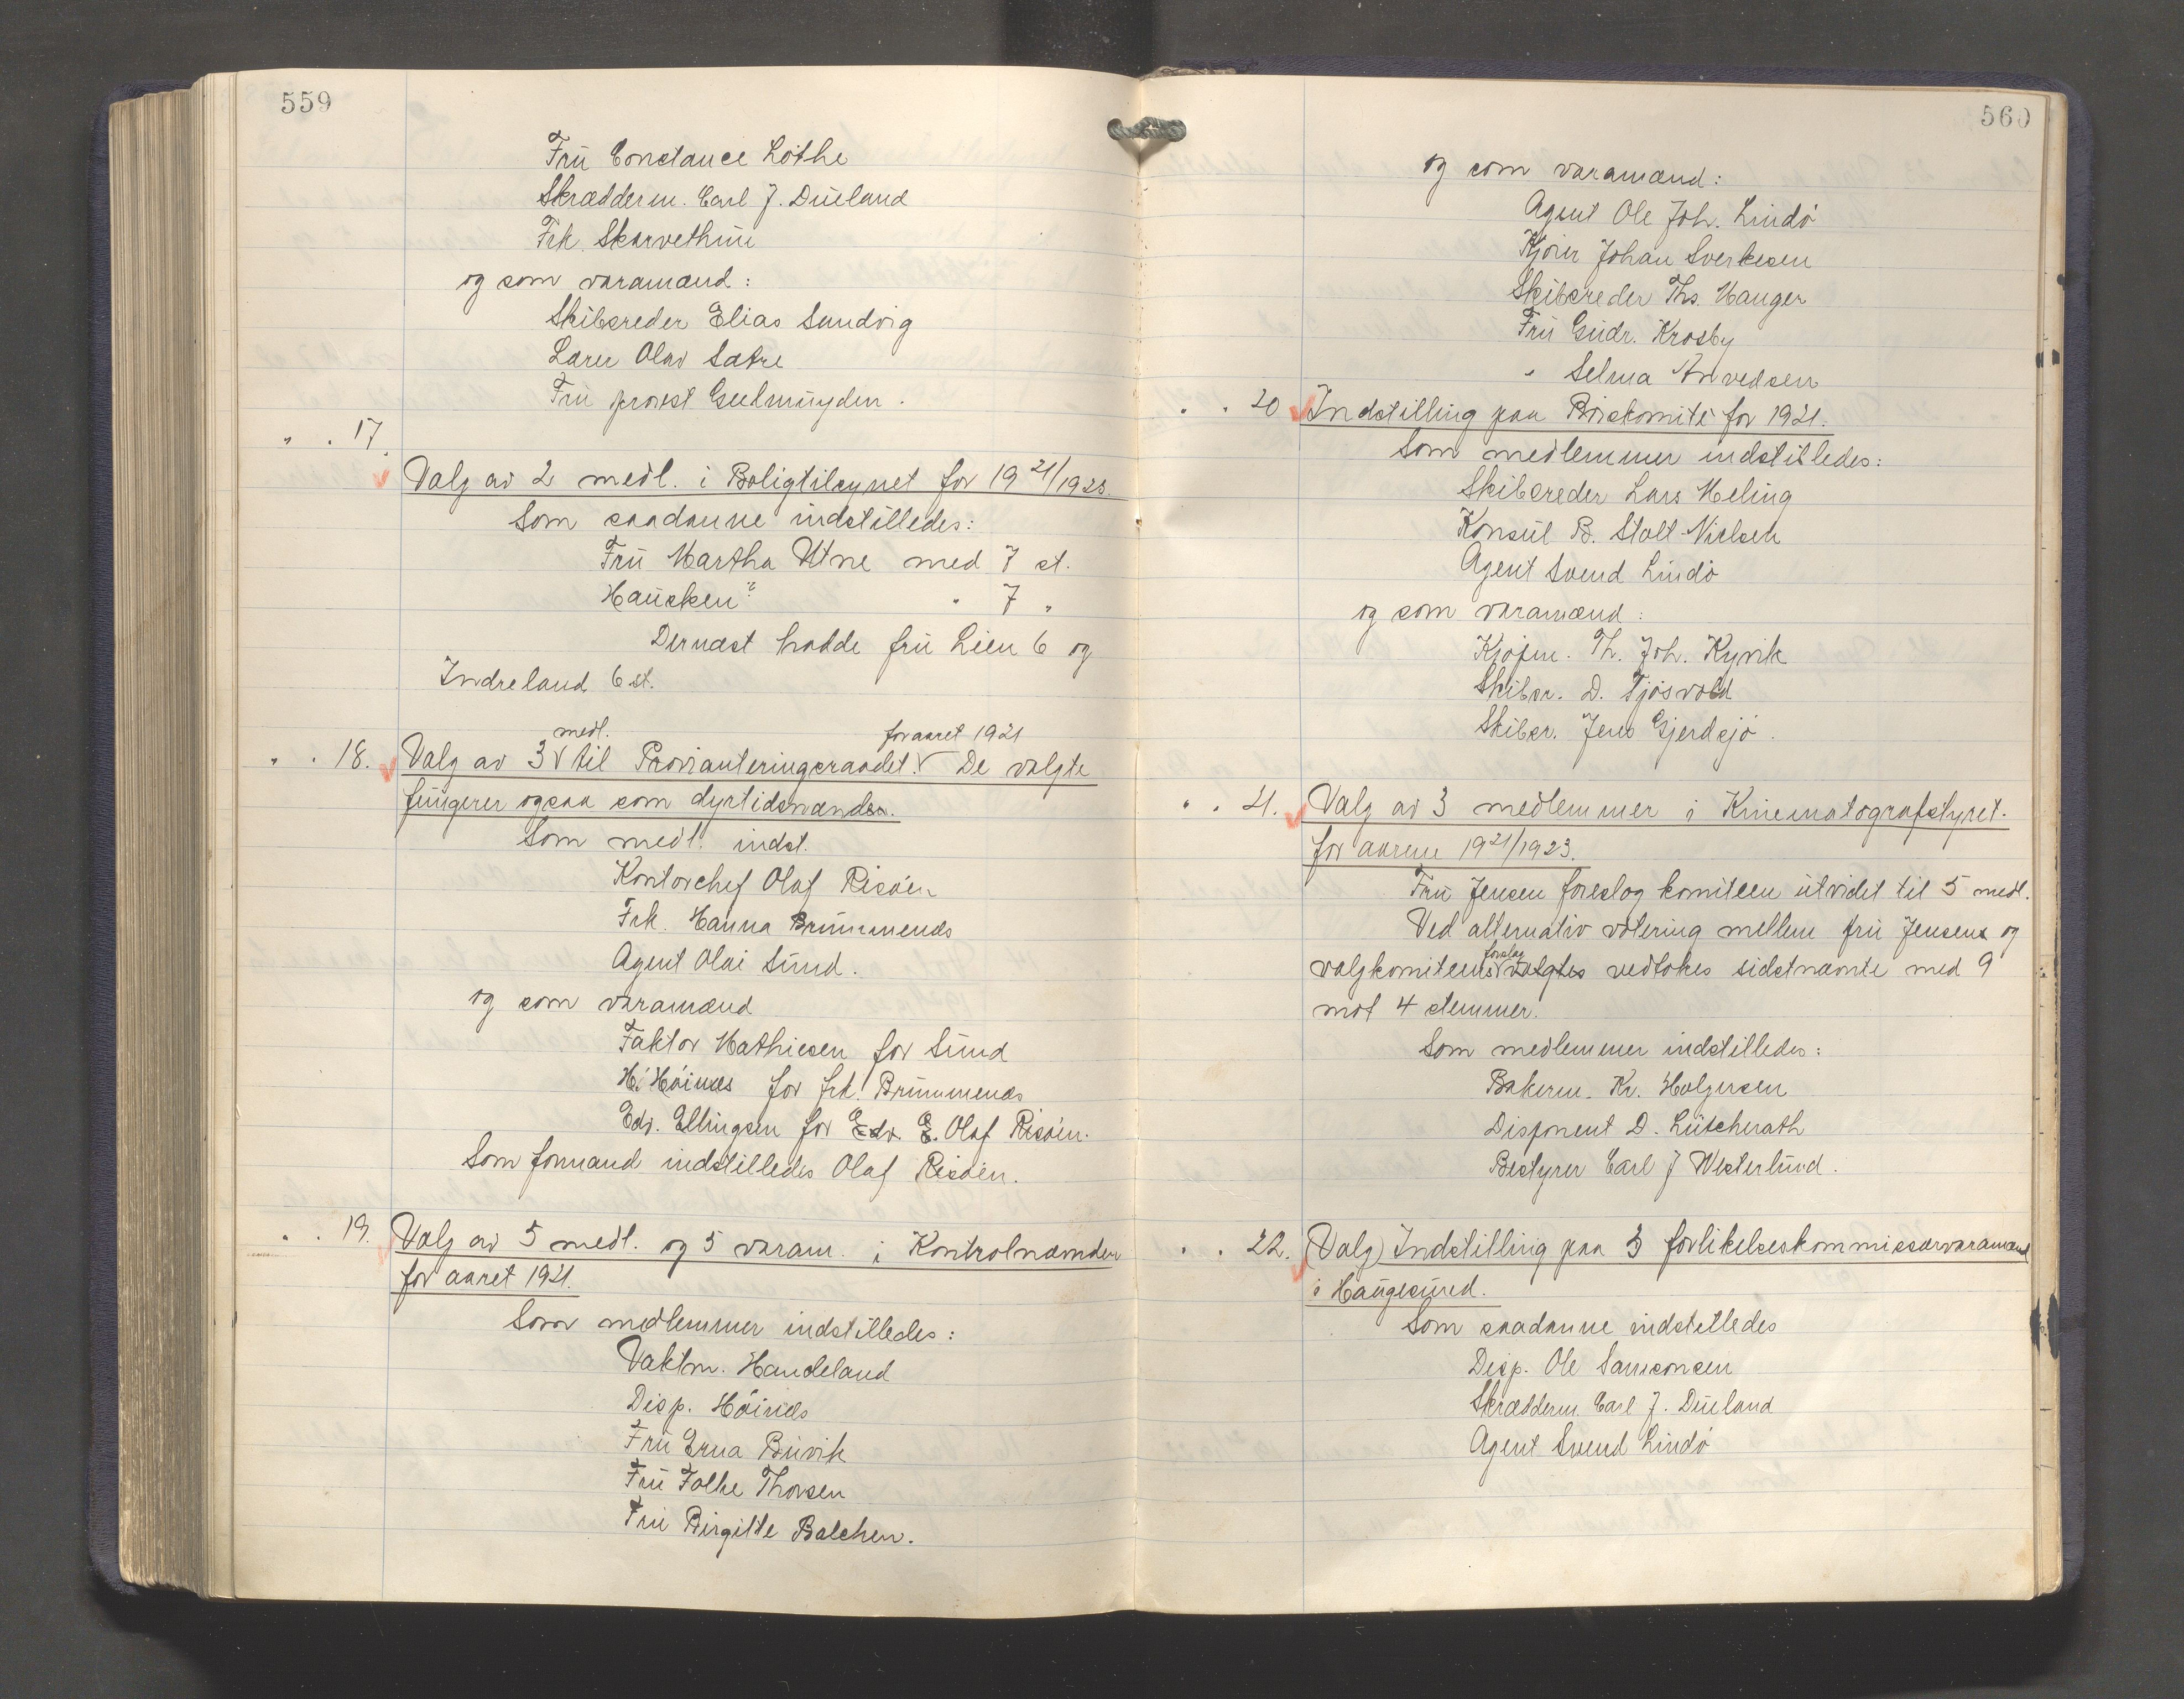 559
Fru Constance Lothe
Skrædderm. Carl J. Dueland
Frk. Skarvethun
og som varamænd:
Skibsreder Elias Sundvig
Lærer Olav Sætre
Fru provst Gulmuyden.
" . 17.
Valg av 2 medl. i Boligtilsynet for 1921/1923.
Som saadanne indstilledes:
Fru Martha Utne med 7 st.
Hausken? " 7 "
Dernæst hadde fru Lien 6 og
Indreland 6 st.
medl. for aaret 1921
" . 18. Valg av 3 V til Provianteringsraadet. V De valgte
fungerer ogsaa som dyrtidsnævnder.
Som medl. indst.
Kontorchef Olaf Risøen
Frk. Hanna Brummenæs
Agent Olai Sund.
og som varamænd
Faktor Mathiesen for Sund
H. Høinæs for frk. Brummenæs
Edv. Ellingsen for Edv. E. Olaf Risøen.
Som formand indstilledes Olaf Risøen.
" . 19. Valg av 5 medl. og 5 varam. i Kontrolnævnden
for aaret 1921.
Som medlemmer indstilledes:
Vaktm. Handeland
Disp. Høinæs
Fru Erna Buvik
Fru Folke Thorsen
Fru Birgitte Balchen.
560
og som varamænd:
Agent Ole Joh. Lindø
Kjører Johan Sverkesen
Skibsreder Ths. Hauger
Fru Gudr. Krosby
" Selma Arvedsen
" . 20 Indstilling paa Priskomité for 1921.
Som medlemmer indstilledes:
Skibsreder Lars Meling
Konsul B. Stolt-Nielsen
Agent Svend Lindø
og som varamænd:
Kjøpm. Th. Joh. Kyvik
Skibsr. D. Tjøsvold
Skibsr. Jens Gjerdsjø.
" . 21. Valg av 3 medlemmer i Kinematografstyret.
for aarene 1921/1923.
Fru Jensen foreslog komiteen utvidet til 5 medl.
Ved alternativ votering mellem fru Jensens og
forslag
valgkomiteens V valgtes vedtokes sidstnævnte med 9
mot 4 stemmer.
Som medlemmer indstilledes:
Bakerm. Kr. Holgersen
Disponent D. Lütcherath
Bestyrer Carl J Westerlund.
" . 22. (Valg) Indstilling paa 3 forlikelseskommissærvaramænd
i Haugesund.
Som saadanne indstilledes
Disp. Ole Samsonsen
Skrædderm. Carl J. Dueland
Agent Svend Lindø